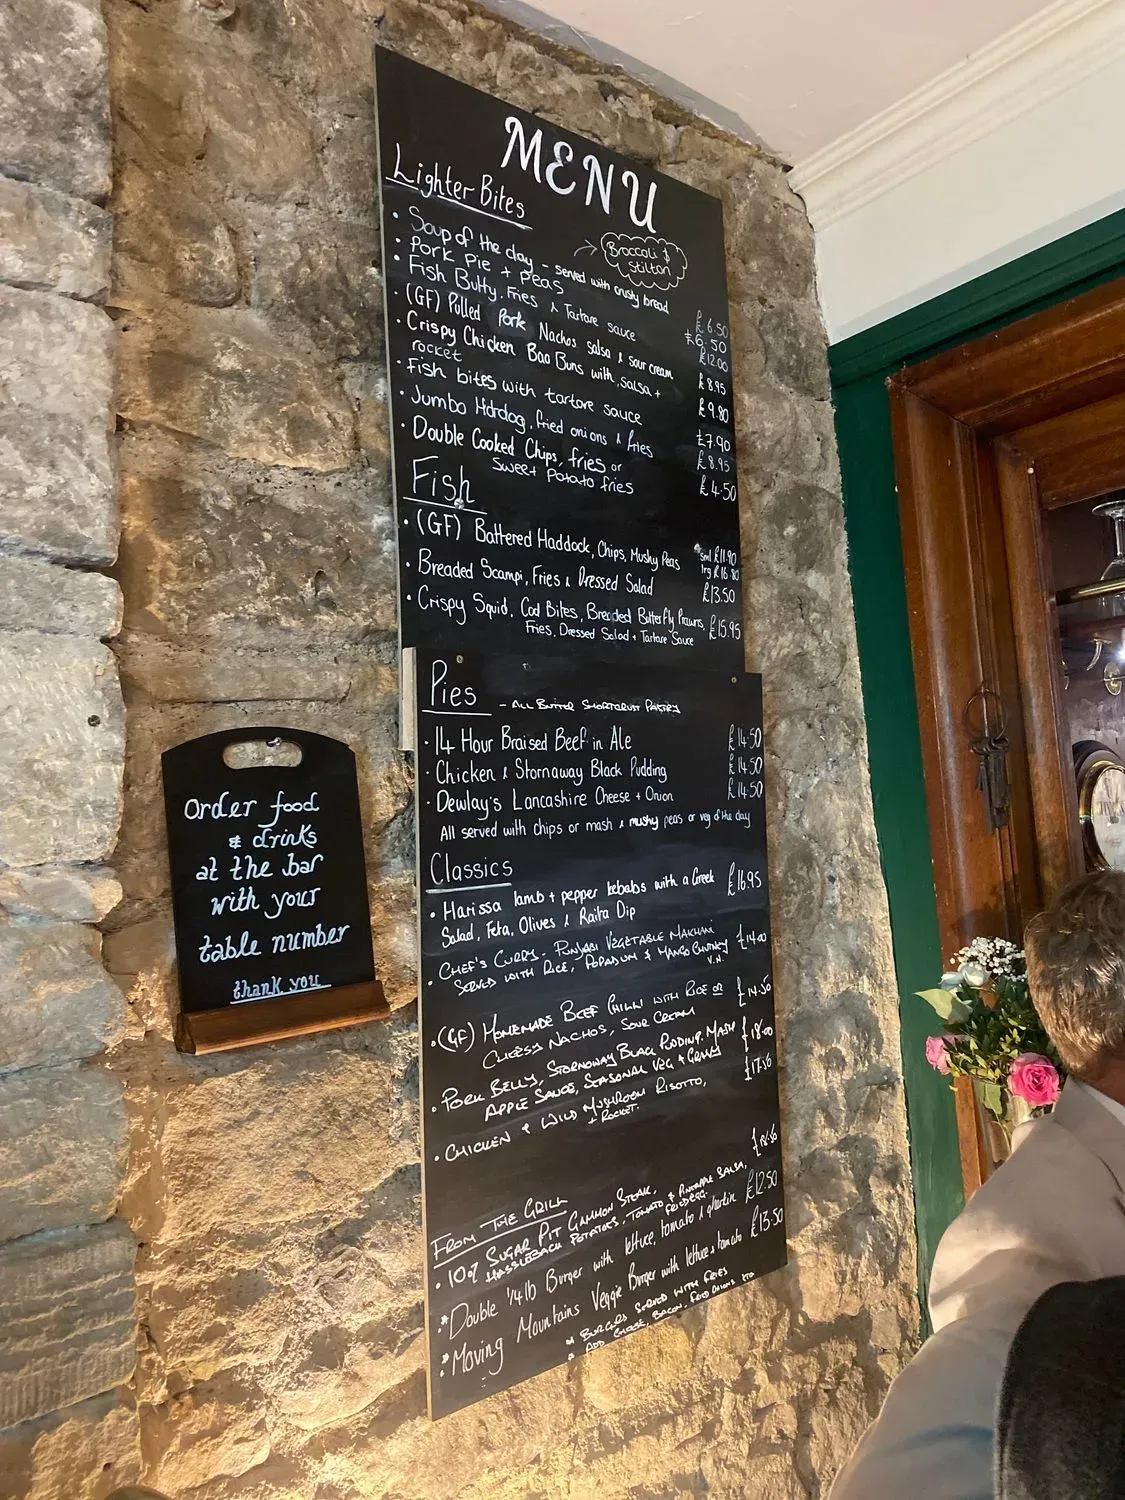 MENU
Lighter Bites
Broccoli &
Stilton
• Soup of the day - served with crusty bread £6.50
• Pork Pie + Peas £6.50
• Fish Butty, Fries & Tartare sauce £12.00
• (GF) Pulled Pork Nachos salsa & sour cream £8.95
• Crispy Chicken Bao Buns with salsa +
rocket £9.80
• Fish bites with tartare sauce £7.90
• Jumbo Hotdog, fried onions & fries £8.95
• Double Cooked Chips, fries or
sweet potato fries £4.50
Fish
• (GF) Battered Haddock, Chips, Mushy Peas sml £11.90
lrg £16.80
• Breaded Scampi, Fries & Dressed Salad £13.50
• Crispy Squid, Cod Bites, Breaded Butterfly Prawns,
Fries, Dressed Salad + Tartare Sauce £15.95
Pies - ALL BUTTER SHORTCRUST PASTRY
• 14 Hour Braised Beef in Ale £14.50
• Chicken & Stornaway Black Pudding £14.50
• Dewlay's Lancashire Cheese + Onion £14.50
All served with chips or mash & mushy peas or veg of the day
Classics
• Harissa lamb + pepper kebabs with a Greek £16.95
Salad, Feta, Olives & Raita Dip
• CHEF'S CURRY - PUNJABI VEGETABLE MAKHANI £14.00
SERVED WITH RICE, POPADUM & MANGO CHUTNEY
• (GF) HOMEMADE BEEF CHILLI WITH RICE OR £14.50
CHEESY NACHOS, SOUR CREAM
• PORK BELLY, STORNOWAY BLACK PUDDING, MASH £18.00
APPLE SAUCE, SEASONAL VEG + GRAVY
• CHICKEN & WILD MUSHROOM RISOTTO, £17.50
+ ROCKET.
FROM THE GRILL
• 10oz SUGAR PIT GAMMON STEAK,
HASSLEBACK POTATOES, TOMATO & PINEAPPLE SALSA,
FRIED EGG.
* Double 1/4lb Burger with lettuce, tomato & gherkin £12.50
* Moving Mountains Veggie Burger with lettuce & tomato £13.50
* BURGERS SERVED WITH FRIES
* ADD CHEESE, BACON, FRIED ONIONS
Order food
& drinks
at the bar
with your
table number
thank you